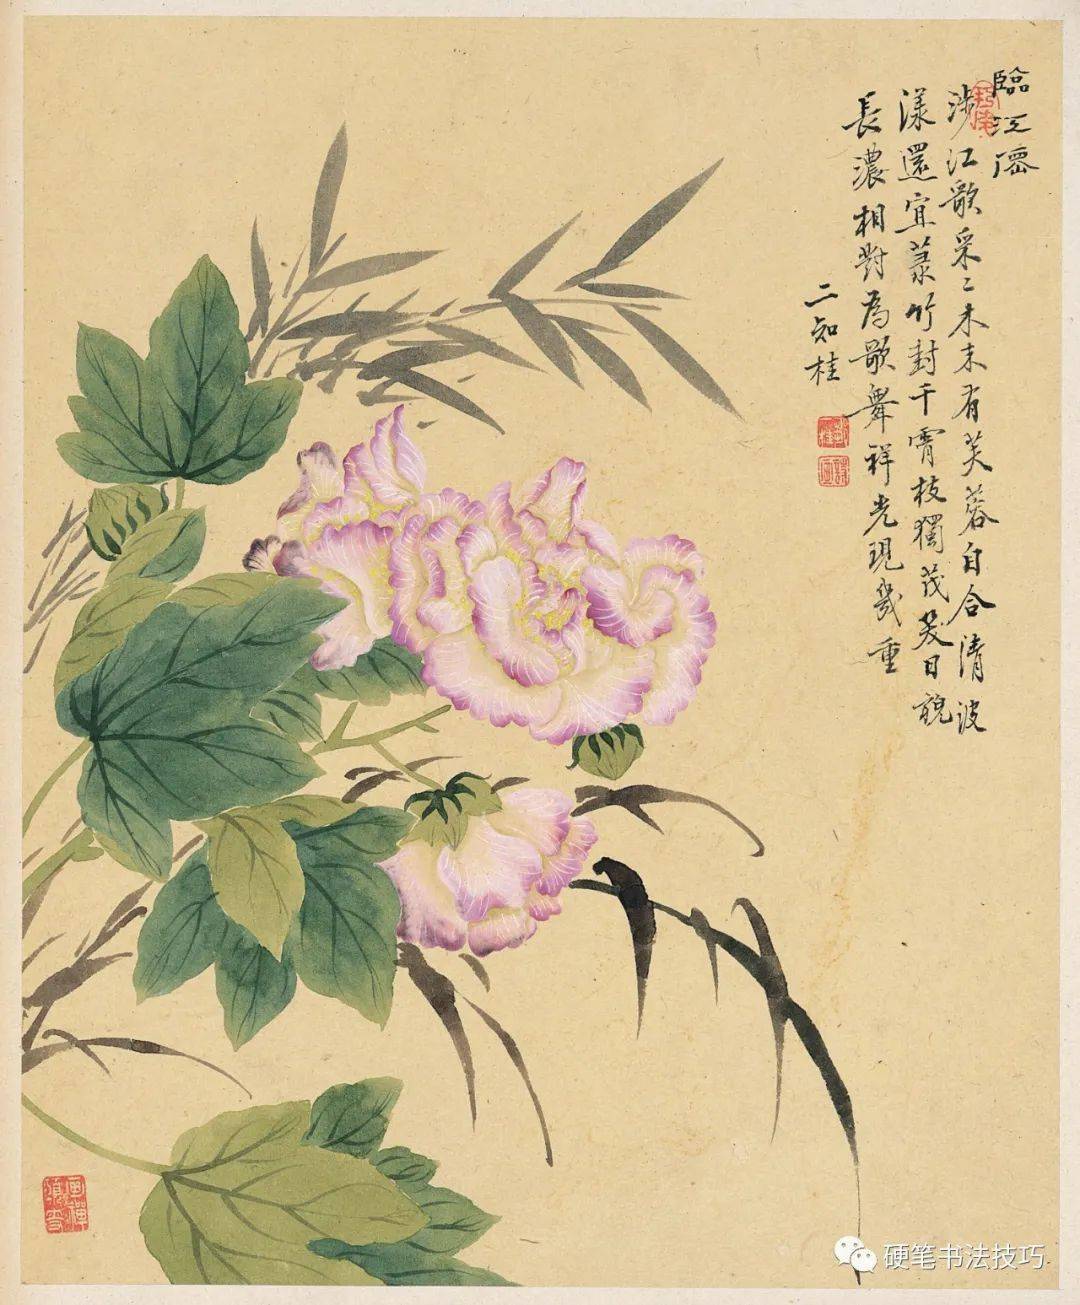 臨江僊
涉江歌采〻未未有芙蓉自合清波
漾還宜菉竹封干霄枝獨茂笑日靘
長濃相對為歌舞祥光現幾重
二知桂
硬笔书法技巧